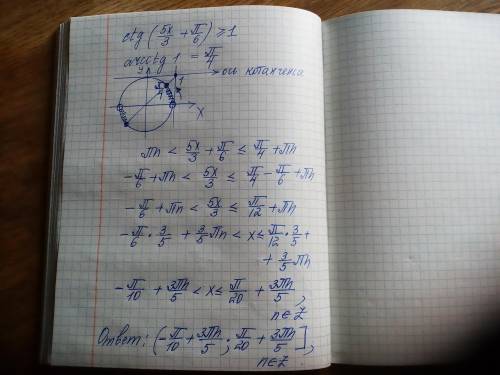 ctg(5x/3 + π/6) ≥ 1
arcctg 1 = π/4
y 1 ось котангенса
π/4
x
πn < 5x/3 + π/6 ≤ π/4 + πn
-π/6 + πn < 5x/3 ≤ π/4 - π/6 + πn
-π/6 + πn < 5x/3 ≤ π/12 + πn
-π/6 · 3/5 + 3/5 πn < x ≤ π/12 · 3/5 +
+ 3/5 πn
-π/10 + 3πn/5 < x ≤ π/20 + 3πn/5,
n ∈ Z
Ответ: (-π/10 + 3πn/5; π/20 + 3πn/5],
n ∈ Z.